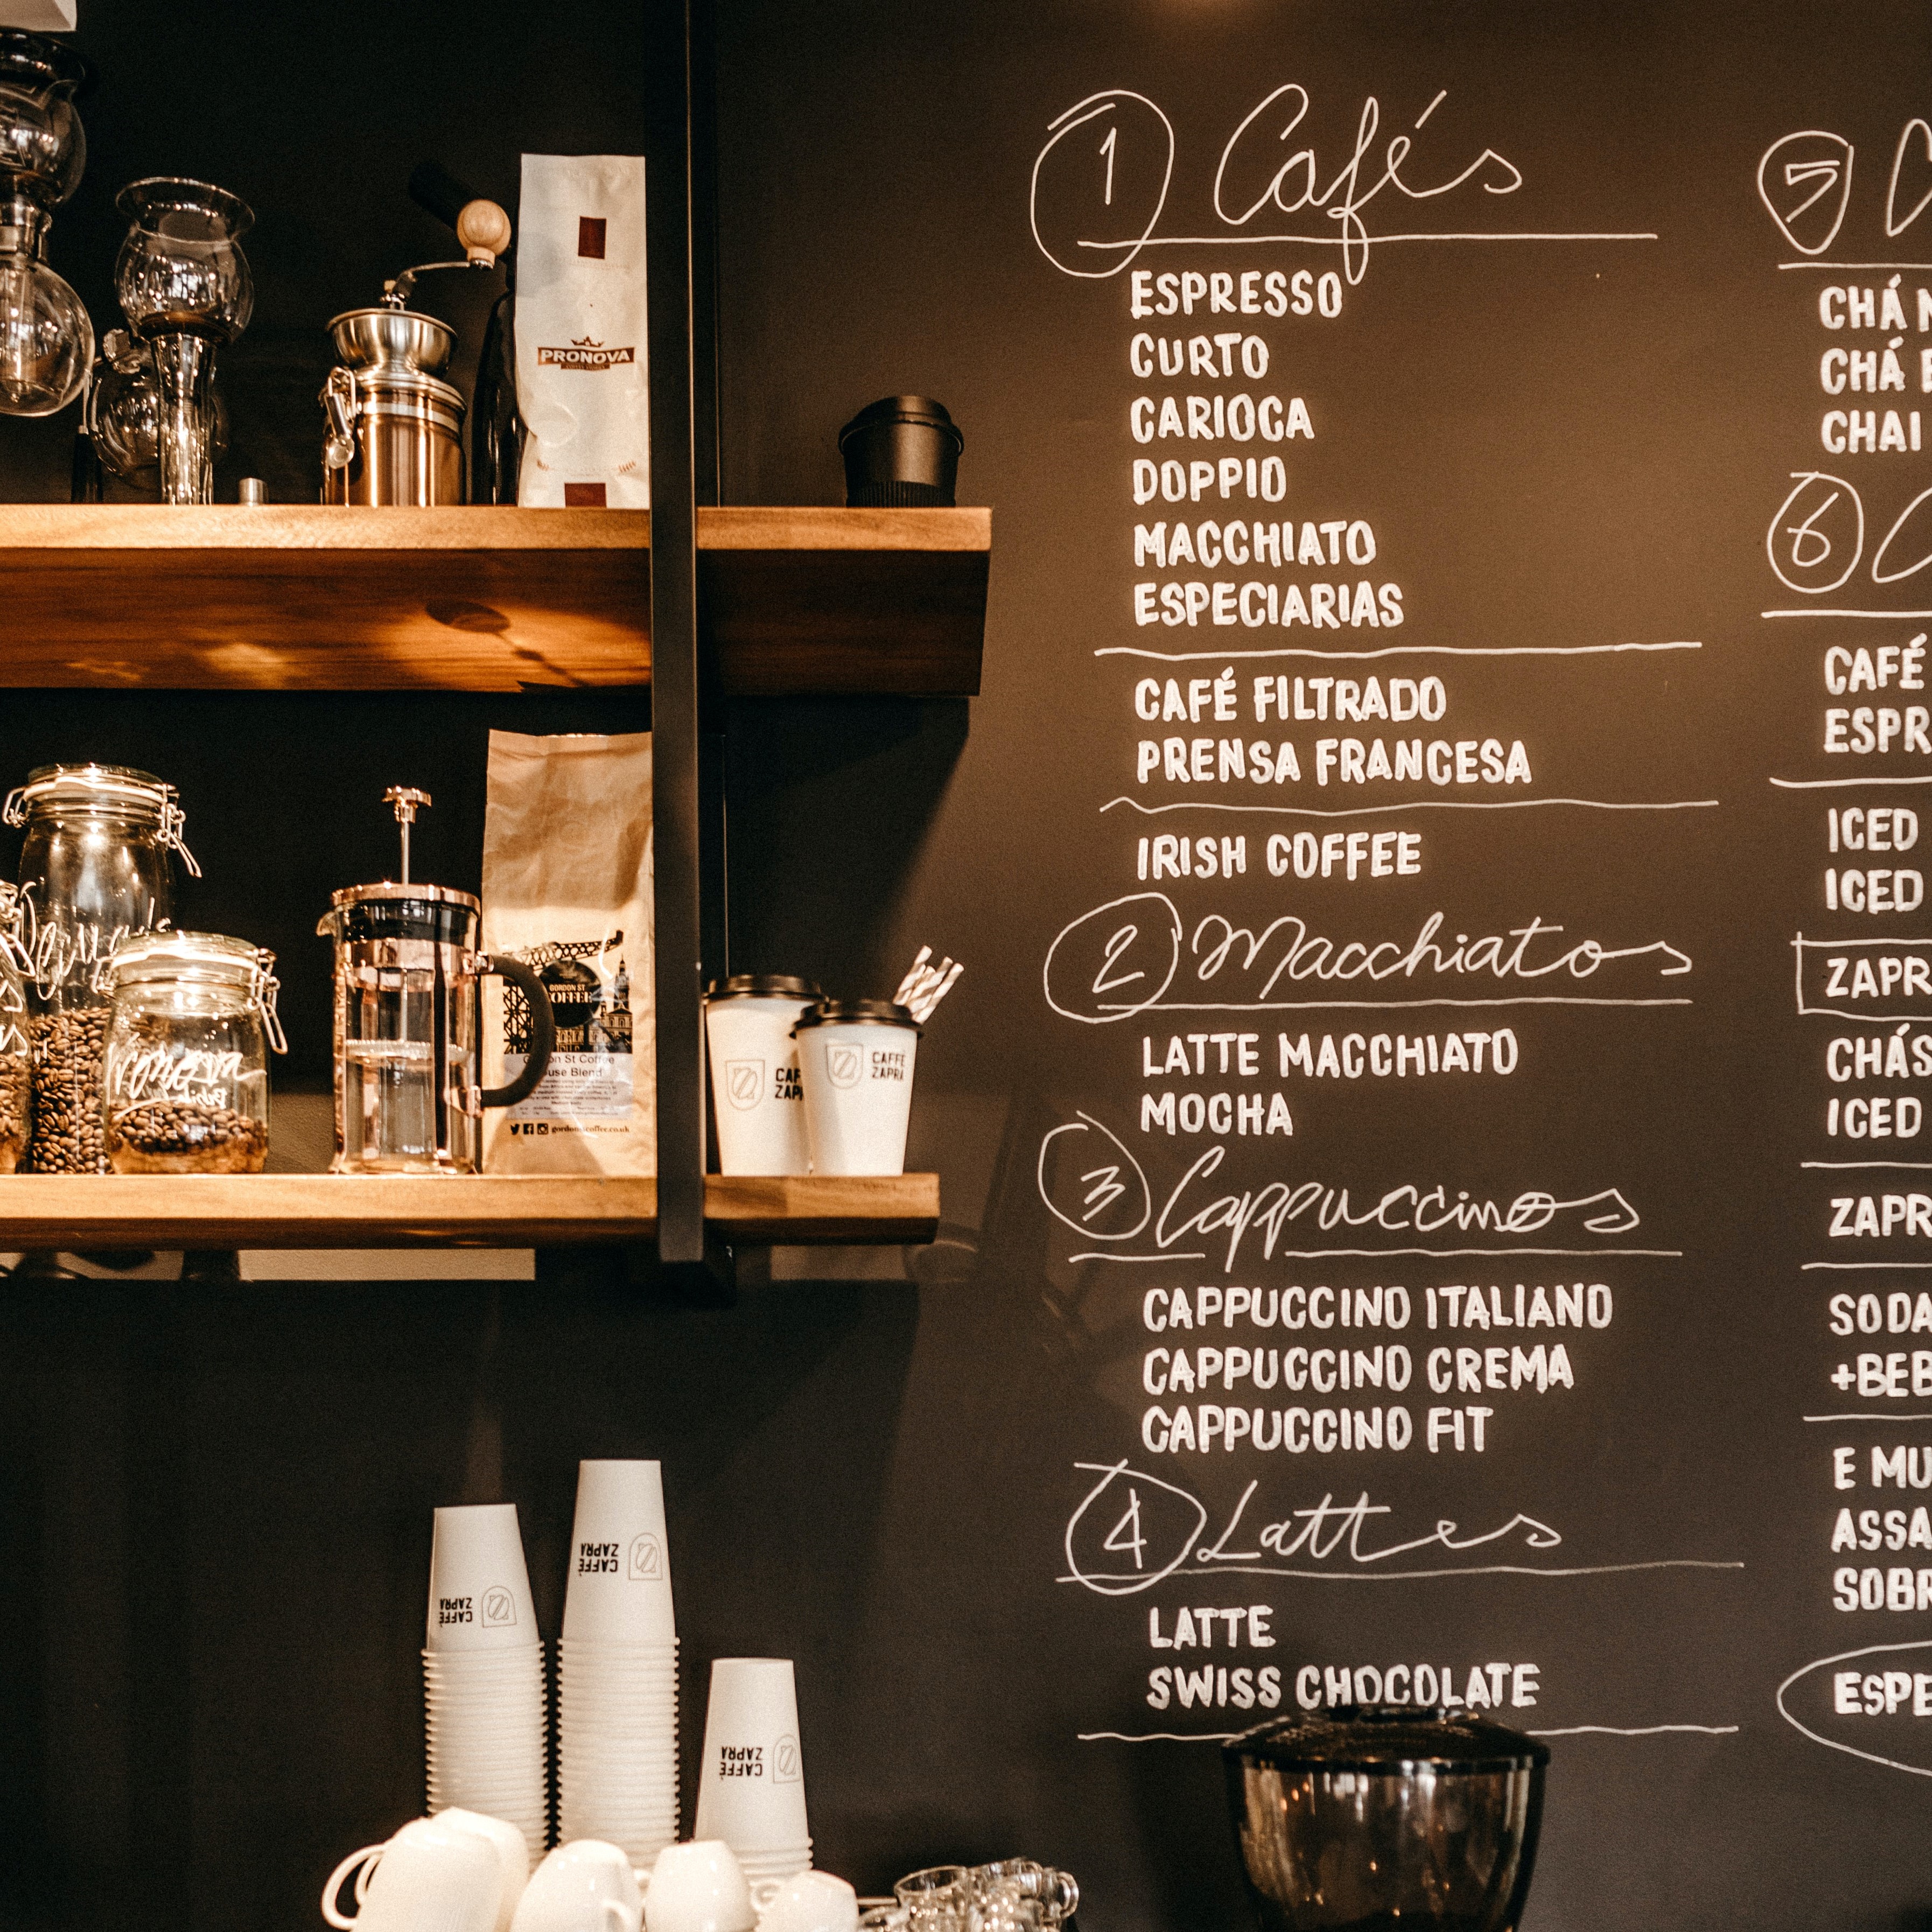 PRONOVA
GORDON ST
COFFEE
St Coffee
Blend
CAFFÈ
ZAPRA
CAFFÈ
ZAPRA
CAFFÈ
ZAPRA
CAFFÈ
ZAPRA
1 Cafés
ESPRESSO
CURTO
CARIOCA
DOPPIO
MACCHIATO
ESPECIARIAS
CAFÉ FILTRADO
PRENSA FRANCESA
IRISH COFFEE
2 Macchiatos
LATTE MACCHIATO
MOCHA
3 Cappuccinos
CAPPUCCINO ITALIANO
CAPPUCCINO CREMA
CAPPUCCINO FIT
4 Lattes
LATTE
SWISS CHOCOLATE
5
CHÁ
CHÁ
CHAI
6
CAFÉ
ESPR
ICED
ICED
ZAPR
CHÁS
ICED
ZAPR
SODA
+BEB
E MU
ASSA
SOBR
ESPE